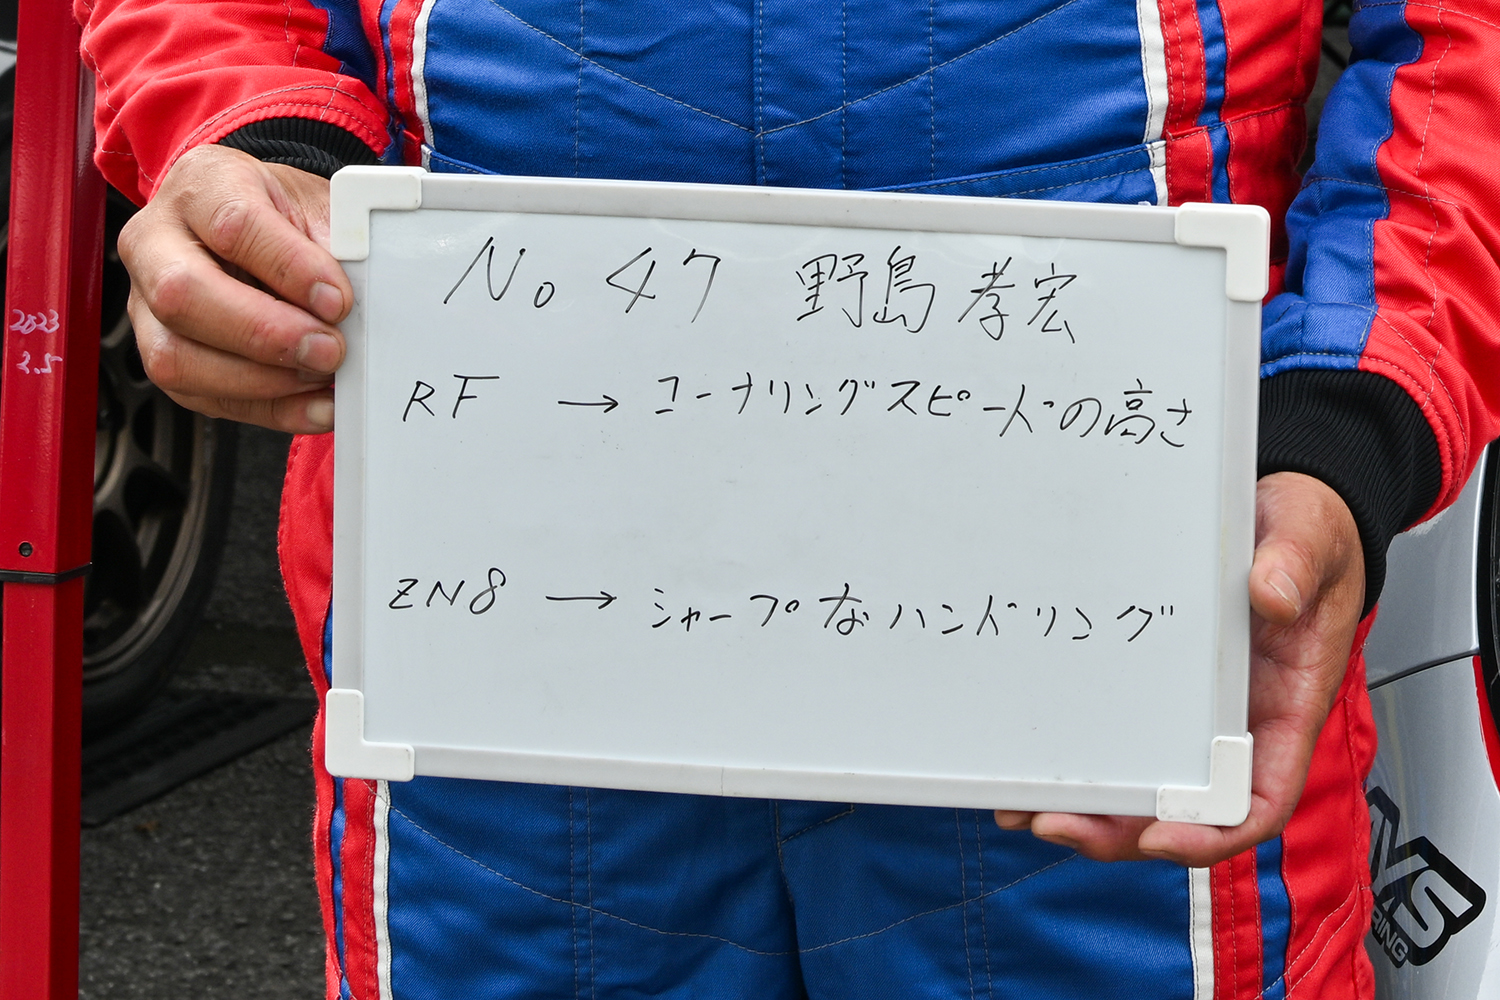 No 47 野島 孝宏
RF → コーナリングスピードの高さ
ZN8 → シャープなハンドリング
2023
3.5
RING